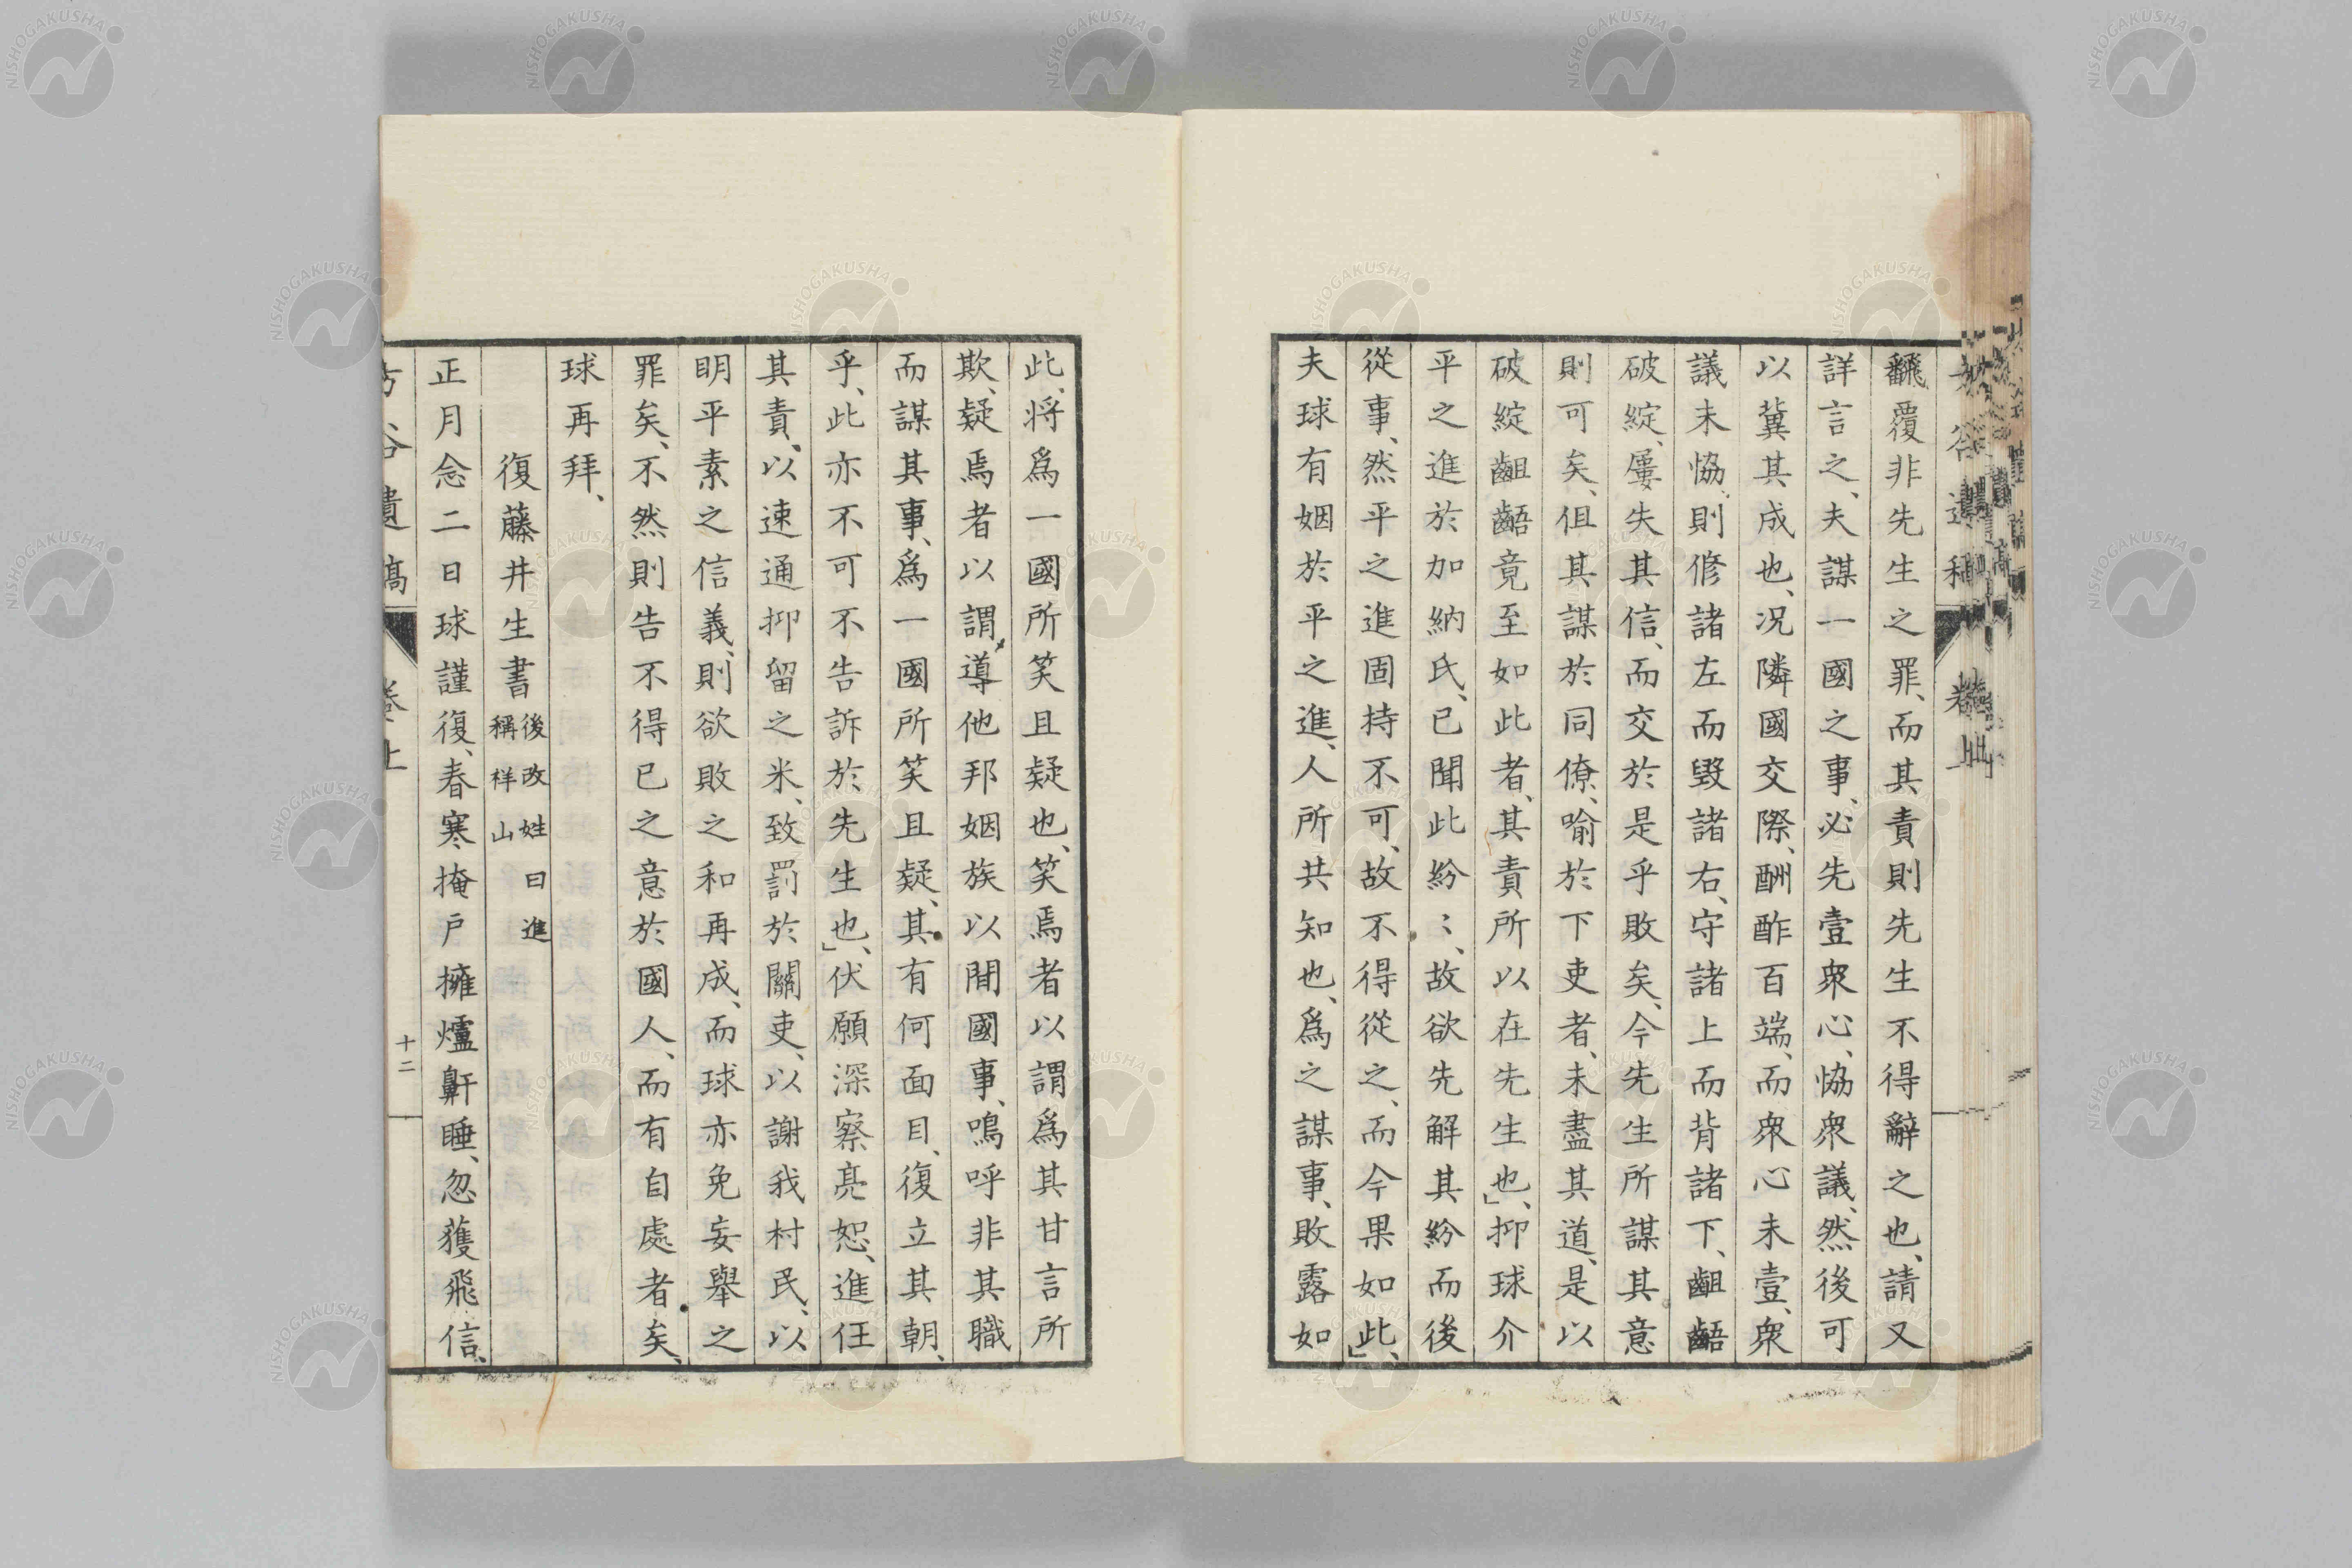 飜覆非先生之罪、而其責則先生不得辭之也、請又
詳言之、夫謀一國之事、必先壹衆心、恊衆議、然後可
以冀其成也、况隣國交際、酬酢百端、而衆心未壹、衆
議未恊、則修諸左而毀諸右、守諸上而背諸下、齟齬
破綻、屢失其信、而交於是乎敗矣、今先生所謀其意
則可矣、但其謀於同僚、喻於下吏者、未盡其道、是以
破綻齟齬竟至如此者、其責所以在先生也」、抑球介
平之進於加納氏、已聞此紛〻、故欲先解其紛而後
從事、然平之進固持不可、故不得從之、而今果如此」、
夫球有姻於平之進、人所共知也、爲之謀事、敗露如
此、将爲一國所笑且疑也、笑焉者以謂爲其甘言所
欺、疑焉者以謂導他邦姻族以間國事、鳴呼非其職
而謀其事、爲一國所笑且疑、其有何面目、復立其朝、
乎、此亦不可不告訴於先生也」、伏願深察亮恕、進任
其責、以速通抑留之米、致罰於關吏、以謝我村民、以
明平素之信義、則欲敗之和再成、而球亦免妄舉之
罪矣、不然則告不得已之意於國人、而有自處者矣、
球再拜、
復藤井生書 後改姓曰進稱祥山
正月念二日球謹復、春寒掩戸擁爐鼾睡、忽獲飛信、
方谷遺稿 卷上 十二
NISHOGAKUSHA